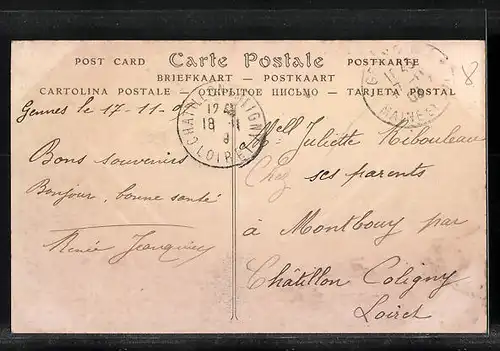 POST CARD Carte Postale POSTKARTE
BRIEFKAART — POSTKAART
CARTOLINA POSTALE - ОТКРЫТОЕ ПИСЬМО - TARJETA POSTAL
Gennes le 17-11-
Bons souvenirs
Bonjour, bonne santé
Renée
CHATILLON COLIGNY
12
18 - 11
LOIRET
GENNES
MAINE
8
Mell Juliette Mibouleau
Chez ses parents
à Montbouy par
Châtillon Coligny
Loiret